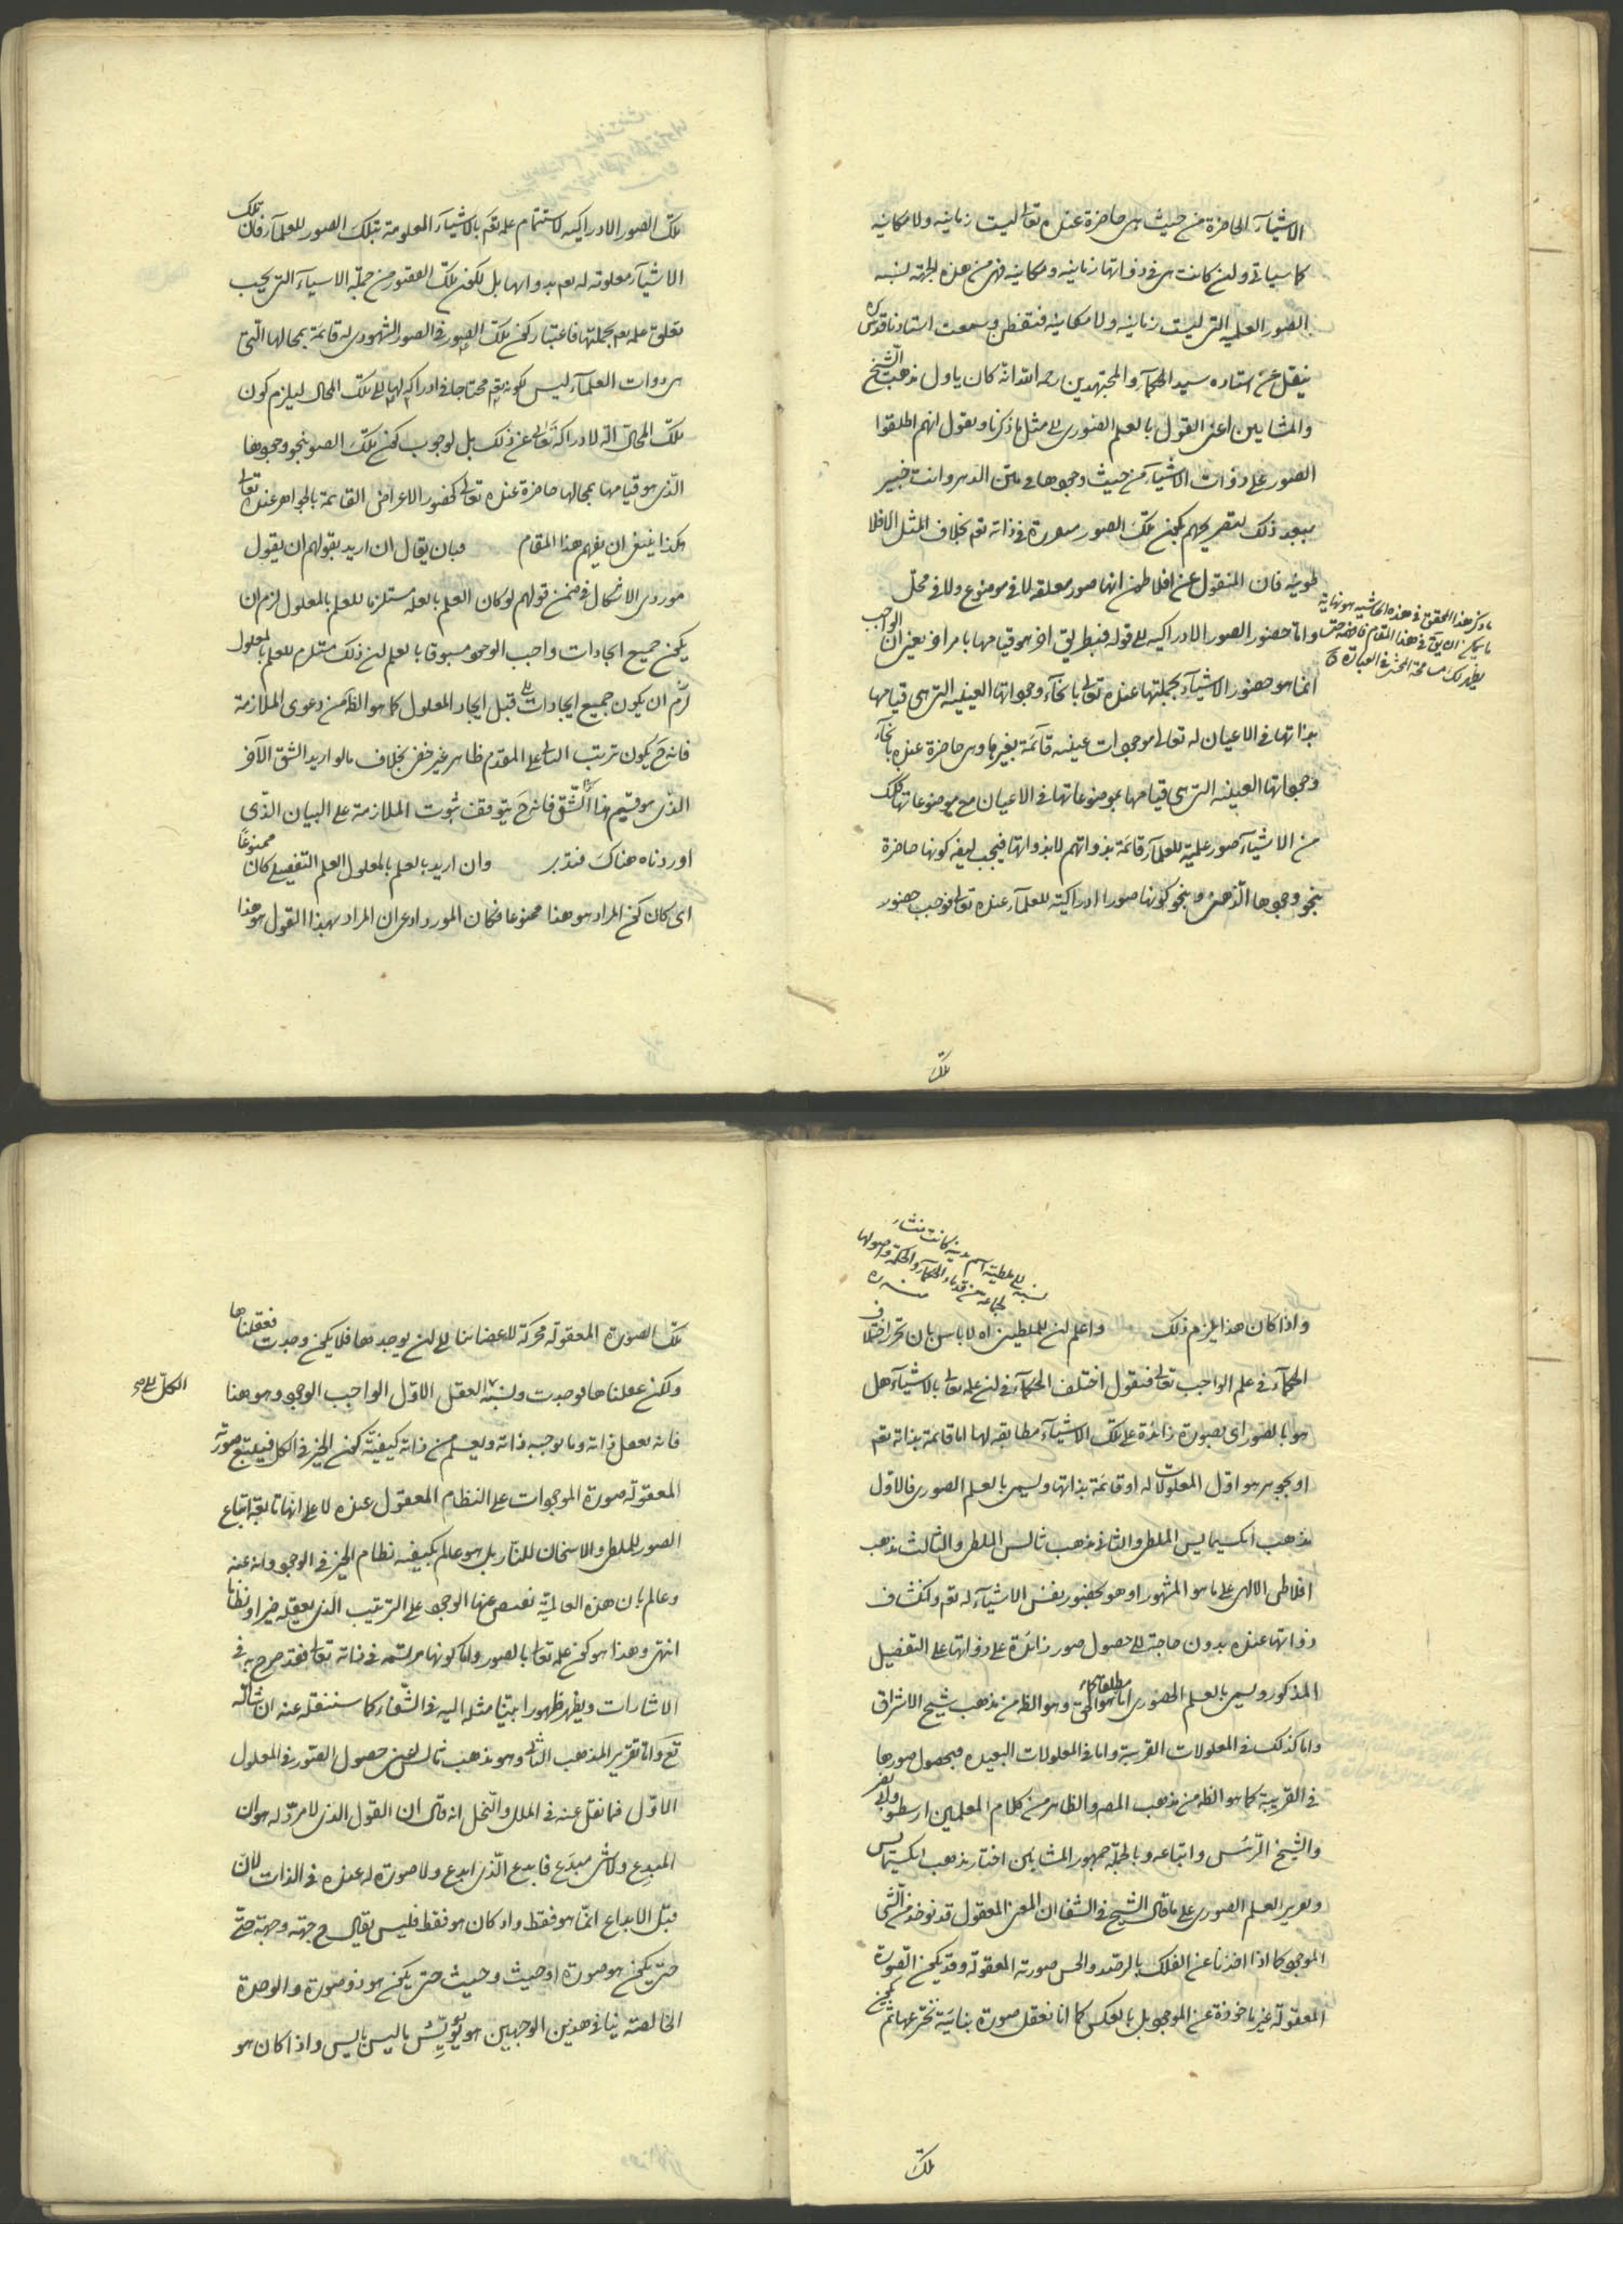 الاشيآء الحاضرة من حيث هى حاضرة عنده تعالى ليست زمانيه ولا مكانيه
كما سياتى ولئن كانت هى فى ذواتها زمانيه ومكانيه فهى من هذه الجهة لشبه
الصور العلميه التى ليست زمانيه ولا مكانيه فتفطن وسمعت استادنا قدس سره
ينقل عن استاده سيد الحكمآء والمجتهدين رحمه الله انه كان ياول مذهب الشيخ
والمشايين اعنى القول بالعلم الصورى الى مثل ما ذكرنا ويقول انهم اطلقوا
الصور على ذوات الاشيآء من حيث وجودها فى متن الدهر وانت خبير
ببعد ذلك لتصريحهم بكون تلك الصور مصورة فى ذاته تعم بخلاف المثل الافلا
طونيه فان المنقول عن افلاطون انها صور معلقه لا فى موضوع ولا فى محل
واما حضور الصور الادراكيه الى قوله فبطريق اخر هو قيامها بامر اخر يعنى ان الواجب
انما هو حضور الاشيآء بجملتها عنده تعالى بانحآء وجوداتها العينيه التى هى قيامها
بذاتها فى الاعيان له تعالى موجودات عينيه قآئمة بغيرها وهى حاضرة عنده بانحآء
وجوداتها العينيه التى هى قيامها بموضوعاتها فى الاعيان مع موضوعاتها فلك
من الاشيآء صور علمية للعلمآء قائمة بذواتهم لا بذواتها فيجب ايضه كونها حاضرة
بنحو وجودها الذهنى وبنحو كونها صورا ادراكية للعلمآء عنده تعالى فوجب حضور
ما ذكر هذا المحقق فى هذه الحاشيه هو نهاية
ما يمكن ان يق فى هذا المقام فافهمه حتى
يظهر لك مسامحة المحشى فى العبارة
تلك
تلك الصور الادراكيه لاستتمام علمه تعم بالاشيآء المعلومة بتلك الصور للعلمآء فان تلك
الاشيآء معلومة له تعم بذواتها بل لكون تلك الصور من جملة الاشيآء التى يجب
تعلق علمه تعم بجملتها فاعتبار كون تلك الصور فى الصور الشهودى له قائمة بمحالها التى
هى ذوات العلمآء ليس لكونه تعم محتاجا فى ادراكه لها الى تلك المحال ليلزم كون
تلك المحال آلة لادراكه تعالى عن ذلك بل لوجوب كون تلك الصور بنحو وجودها
الذى هو قيامها بمحالها حاضرة عنده تعالى كحضور الاعراض القائمة بالجواهر عنده تعالى
هكذا ينبغى ان يفهم هذا المقام فبان يقال ان اريد بقولهم ان يقول
موردى الاشكال فى ضمن قولهم لو كان العلم بالعله مستلزما للعلم بالمعلول لزم ان
يكون جميع ايجادات واجب الوجود مسبوقا بالعلم لئن ذلك مستلزم للعلم بالمعلول
لزم ان يكون جميع ايجادات قبل ايجاد المعلول كما هو الظ من دعوى الملازمة
فانه ح يكون ترتب التالى على المقدم ظاهر غير خفى بخلاف ما لو اريد الشق الآخر
الذى هو قسيم هذا الشق فانه ح يتوقف ثبوت الملازمة على البيان الذى
اوردناه هناك فتدبر وان اريد بالعلم بالمعلول العلم التفصيلى كان ممنوعا
اى كان كون المراد هو هذا ممنوعا فكان المورد ادعى ان المراد بهذا القول هو هذا
نسبة الى ملطيه اسم مدينه كانت منشاء
لجماعة من قدماء الحكمآء والحكمة واصولها
منه ره
واذا كان هذا يلزم ذلك واعلم لئن للملطيين اه لا باس بان تحرر اختلاف
الحكمآء فى علم الواجب تعالى فنقول اختلف الحكمآء فى لئن علمه تعالى بالاشيآء هل
هو بالصور اى بصورة زائدة على تلك الاشيآء مطابقه لها اما قائمة بذاته تعم
او بجوهر هو اول المعلولات له او قائمة بذاتها ويسمى بالعلم الصورى فالاول
مذهب انكسيمايس الملطى والثانى مذهب ثالس الملطى والثالث مذهب
افلاطن الالهى على ما هو المشهور او هو بحضور نفس الاشيآء له تعم وانكشاف
ذواتها عنده بدون حاجة الى حصول صور زائدة على ذواتها على التفصيل
المذكور ويسمى بالعلم الحضورى اما مطلقا كما هو الحق وهو الظ من مذهب شيخ الاشراق
واما كذلك فى المعلولات القريبة واما فى المعلولات البعيده فبحصول صورها
فى القريبة كما هو الظ من مذهب المصه والظاهر من كلام المعلمين ارسطو وابى نصر
والشيخ الرئس واتباعه وبالجملة جمهور المشايين اختار مذهب انكسيمايس
وتعرير العلم الصورى على ما قال الشيخ فى الشفا ان المعنى المعقول قد يوخذ من الشى
الموجود كما اذا اخذنا عن الفلك بالرصد والحس صورته المعقولة وقد يكون الصورة
المعقولة غير ماخوذة عن الموجود بل بالعكس كما انا نعقل صورة بنائية نخترعها ثم يكون
تلك
تلك الصورة المعقولة محركة لاعضائنا الى لئن يوجدها فلا يكون وجدت فعقلناها
ولكن عقلناها فوجدت ونسبة العقل الاول الواجب الوجود وهو هذا
الكل الى صح
فانه يعقل ذاته وما يوجبه ذاته ويعلم من ذاته كيفية كون الخير فى الكل فيتبع صورته
المعقولة صورة الموجودات على النظام المعقول عنده لا على انها تابعة اتباع
الضور للملطى والاسخان للنار بل هو عالم بكيفيه نظام الخير فى الوجود وانه عنه
وعالم بان هذه العالمية يفيض عنها الوجود على الترتيب الذى يعقله خيرا ونظاما
انتهى وهذا هو كون علمه تعالى بالصور واما كونها مرتسمه فى ذاته تعالى فقد صرح به فى
الاشارات ويظهر ظهورا بينا مثله اليه فى الشفاء كما سننقله عنه ان شاء الله
تع واما تقرير المذهب الثانى وهو مذهب ثالس اعنى حصول الصور فى المعلول
الاول فما نقل عنه فى الملل والنحل انه قال ان القول الذى لا مرد له هو ان
المبدع ولا شى مبدع فابدع الذى ابدع ولا صورة له عنده فى الذات لان
قبل الابداع انما هو فقط واذ كان هو فقط فليس يقال ح جهة وجهة حتى
حتى يكون هو صورة او حيث وحيث حتى يكون هو ذو صورة والوحدة
الخالصه ينافى هذين الوجهين هو يؤيس ما ليس بايس واذا كان هو